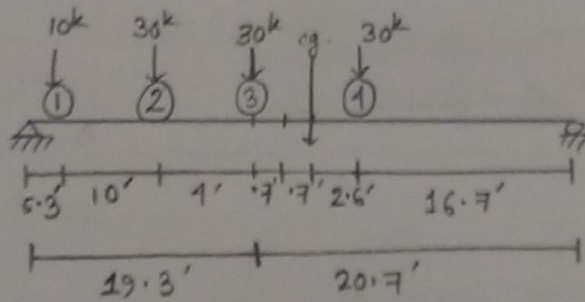 10k 30k 30k cg 30k
1 2 3 4
5.3' 10' 4' .7' .7' 2.6' 16.7'
19.3' 20.7'